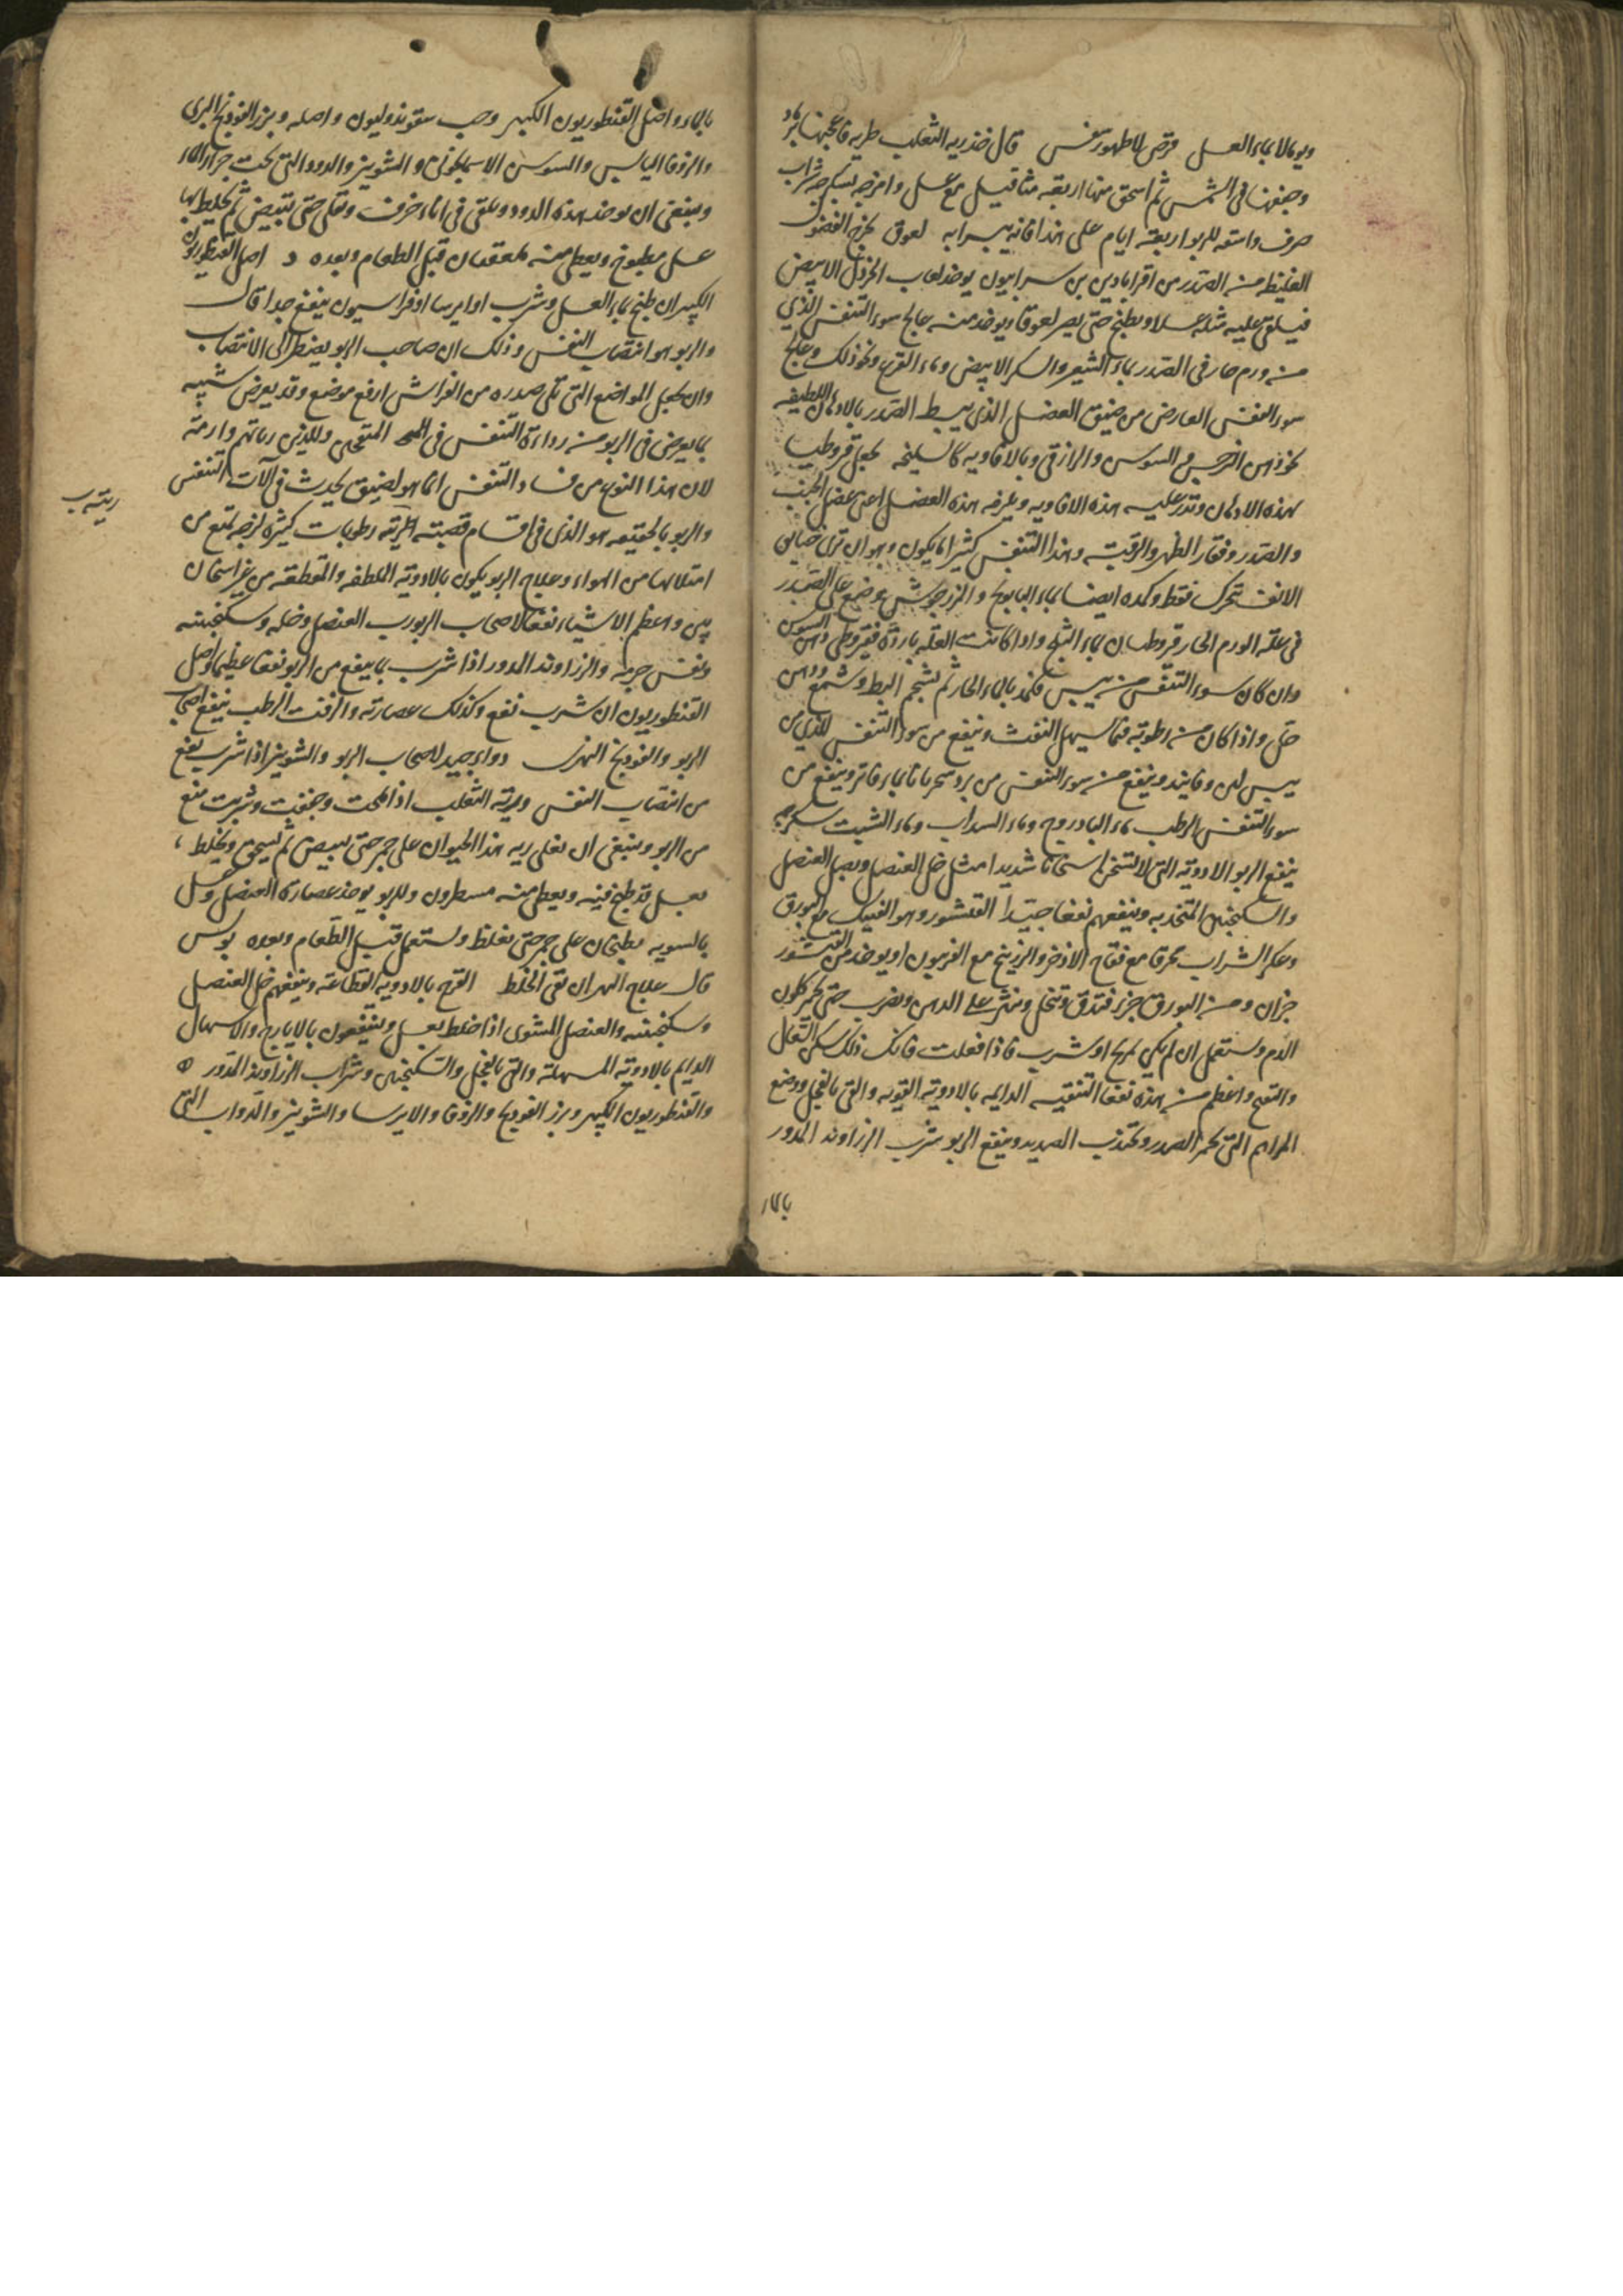 وبولا بماء العسل قرص لاطهورسفس قال خذ ريه الثعلب طريه فاعجنها برماد
وجففها فى الشمس ثم اسحق منها اربعة مثاقيل مع عسل وامزجه بسكرجه شراب
صرف واسقه للربو اربعة ايام على هذا فانه يبرا به لعوق يخرج الفضول
الغليظه من الصدر من اقرابادين بن سرابيون يوخذ لعاب الخردل الابيض
فيلقى عليه مثله عسلا ويطبخ حتى يصر لعوقا ويوخذ منه عالج سوء التنفس الذي
من ورم حار فى الصدر بماء الشعير والسكر الابيض وماء القرع ونحو ذلك وعالج
سوء التنفس العارض من ضيق العضل الذى يبسط الصدر بالادهان اللطيفه
كدهن النرجس والسوسن والرازقى وبالافاويه كالسليخه يجعل قروطيا
بهذه الادهان وتذر عليه هذه الافاويه ويلزمه هذه العضل اعنى عضل الجنب
والصدر وفقار الظهر والرقبة وهذا التنفس كثيرا ما يكون وهو ان ترى جنابى
الانف تتحرك فقط وكمده ايضا بماء البابونج والمرزنجوش وضع على الصدر
فى علة الورم الحار قروطيا بماء الثلج واذا كانت العلة باردة فقيروطى دهن السوسن
وان كان سوء التنفس من يبس فكمد بالماء الحار ثم بشحم البط وشمع ودهن
خل واذا كان من رطوبة فبما يسهل النفث وينفع من سوء التنفس الذى من
يبس لبن وفانيد وينفع من سوء التنفس من برد سحرنانا بماء فاتر وينفع من
سوء التنفس الرطب ماء البادروج وماء السداب وماء الشبت سكرجه
ينفع الربو الادوية التى لا تسخن اسخانا شديدا مثل خل العنصل وبصل العنصل
والسكنجبين المتخذ به وينفعهم نفعا جيدا القيشور وهو الفينك مع البورق
وعكر الشراب محرقا مع فقاح الاذخر والزرنيخ مع الفربيون او يوخذ من القيشور
جزان ومن البورق جزء فتدق وتنخل وينثر على الدهن ويضرب حتى يحمر كلون
الدم ويستعمل ان لم يكن لمريح او شرب فاذا فعلت فانك ذلك سكن السعال
والقيح واعظم من هذه نفعا التنقيه الدايمه بالادوية القويه والقى بالفجل ووضع
المراهم التى تحمر الصدر وتجذب الصديد وينفع الربو شرب الزراوند المدور
بالماء
بالماء واصل القنطوريون الكبير وحب سقوندوليون واصله وبزر الفودنج البرى
والزوفا اليابس والسوسن الاسمانجونى والشونيز والدود التى تحت جرار الماء
وينبغى ان يوخذ هذه الدود ويلقى فى اناء خزف وتقلى حتى تبيض ثم يخلط بها
عسل مطبوخ ويعطى منه ملعقتان قبل الطعام وبعده د اصل القنطوريون
الكبير ان طبخ بماء العسل وشرب او ايرسا او فراسيون ينفع جدا قال
والربو هو انتصاب النفس وذلك ان صاحب الربو يضطر الى الانتصاب
وان يجعل المواضع التى تلى صدره من الفراش ارفع موضع وقد يعرض شبيه
بما يعرض فى الربو من رداءة التنفس فى المتقحين وللذين رياتهم وارمة
لان هذا النوع من فساد التنفس انما هو لضيق يحدث فى آلات التنفس
والربو بالحقيقه هو الذى فى اقسام قصبته الرية رطوبات كثيره لزجه تمنع من
رية ب
امتلائها من الهواء وعلاج الربو يكون بالادوية الملطفه والمقطعه من غير اسخان
بين واعظم الاشياء نفعا لاصحاب الربو رب العنصل وخله وسكنجبينه
ونفس جرمه والزراوند المدور اذا شرب بما ينفع من الربو نفعا عظيما واصل
القنطوريون ان شرب نفع وكذلك عصارته والزفت الرطب ينفع اصحاب
الربو والفودنج النهرى دواء جيد لاصحاب الربو والشونيز اذا شرب نفع
من انتصاب النفس ورية الثعلب اذا ملحت وجففت وشربت تنفع
من الربو وينبغى ان تغلى ريه هذا الحيوان على جمر حتى تبيض ثم تسحق وتخلط
بعسل قد طبخ فيه ويعطى منه مسطرون وللربو يوخذ عصارة العنصل وعسل
بالسويه يطبخان على جمر حتى يغلظ ويستعمل قبل الطعام وبعده بولس
قال علاج البهر ان تقى الخلط القرح بالادويه القطاعة وينفعهم خل العنصل
وسكنجبينه والعنصل المشوى اذا خلط بعسل وينتفعون بالايارج والاسهال
الدايم بالادوية المسهلة والقى بالفجل والسكنجبين وشراب الزراوند المدور ه
والقنطوريون الكبير وبزر الفودنج والزوفا والايرسا والشونيز والدواب التى